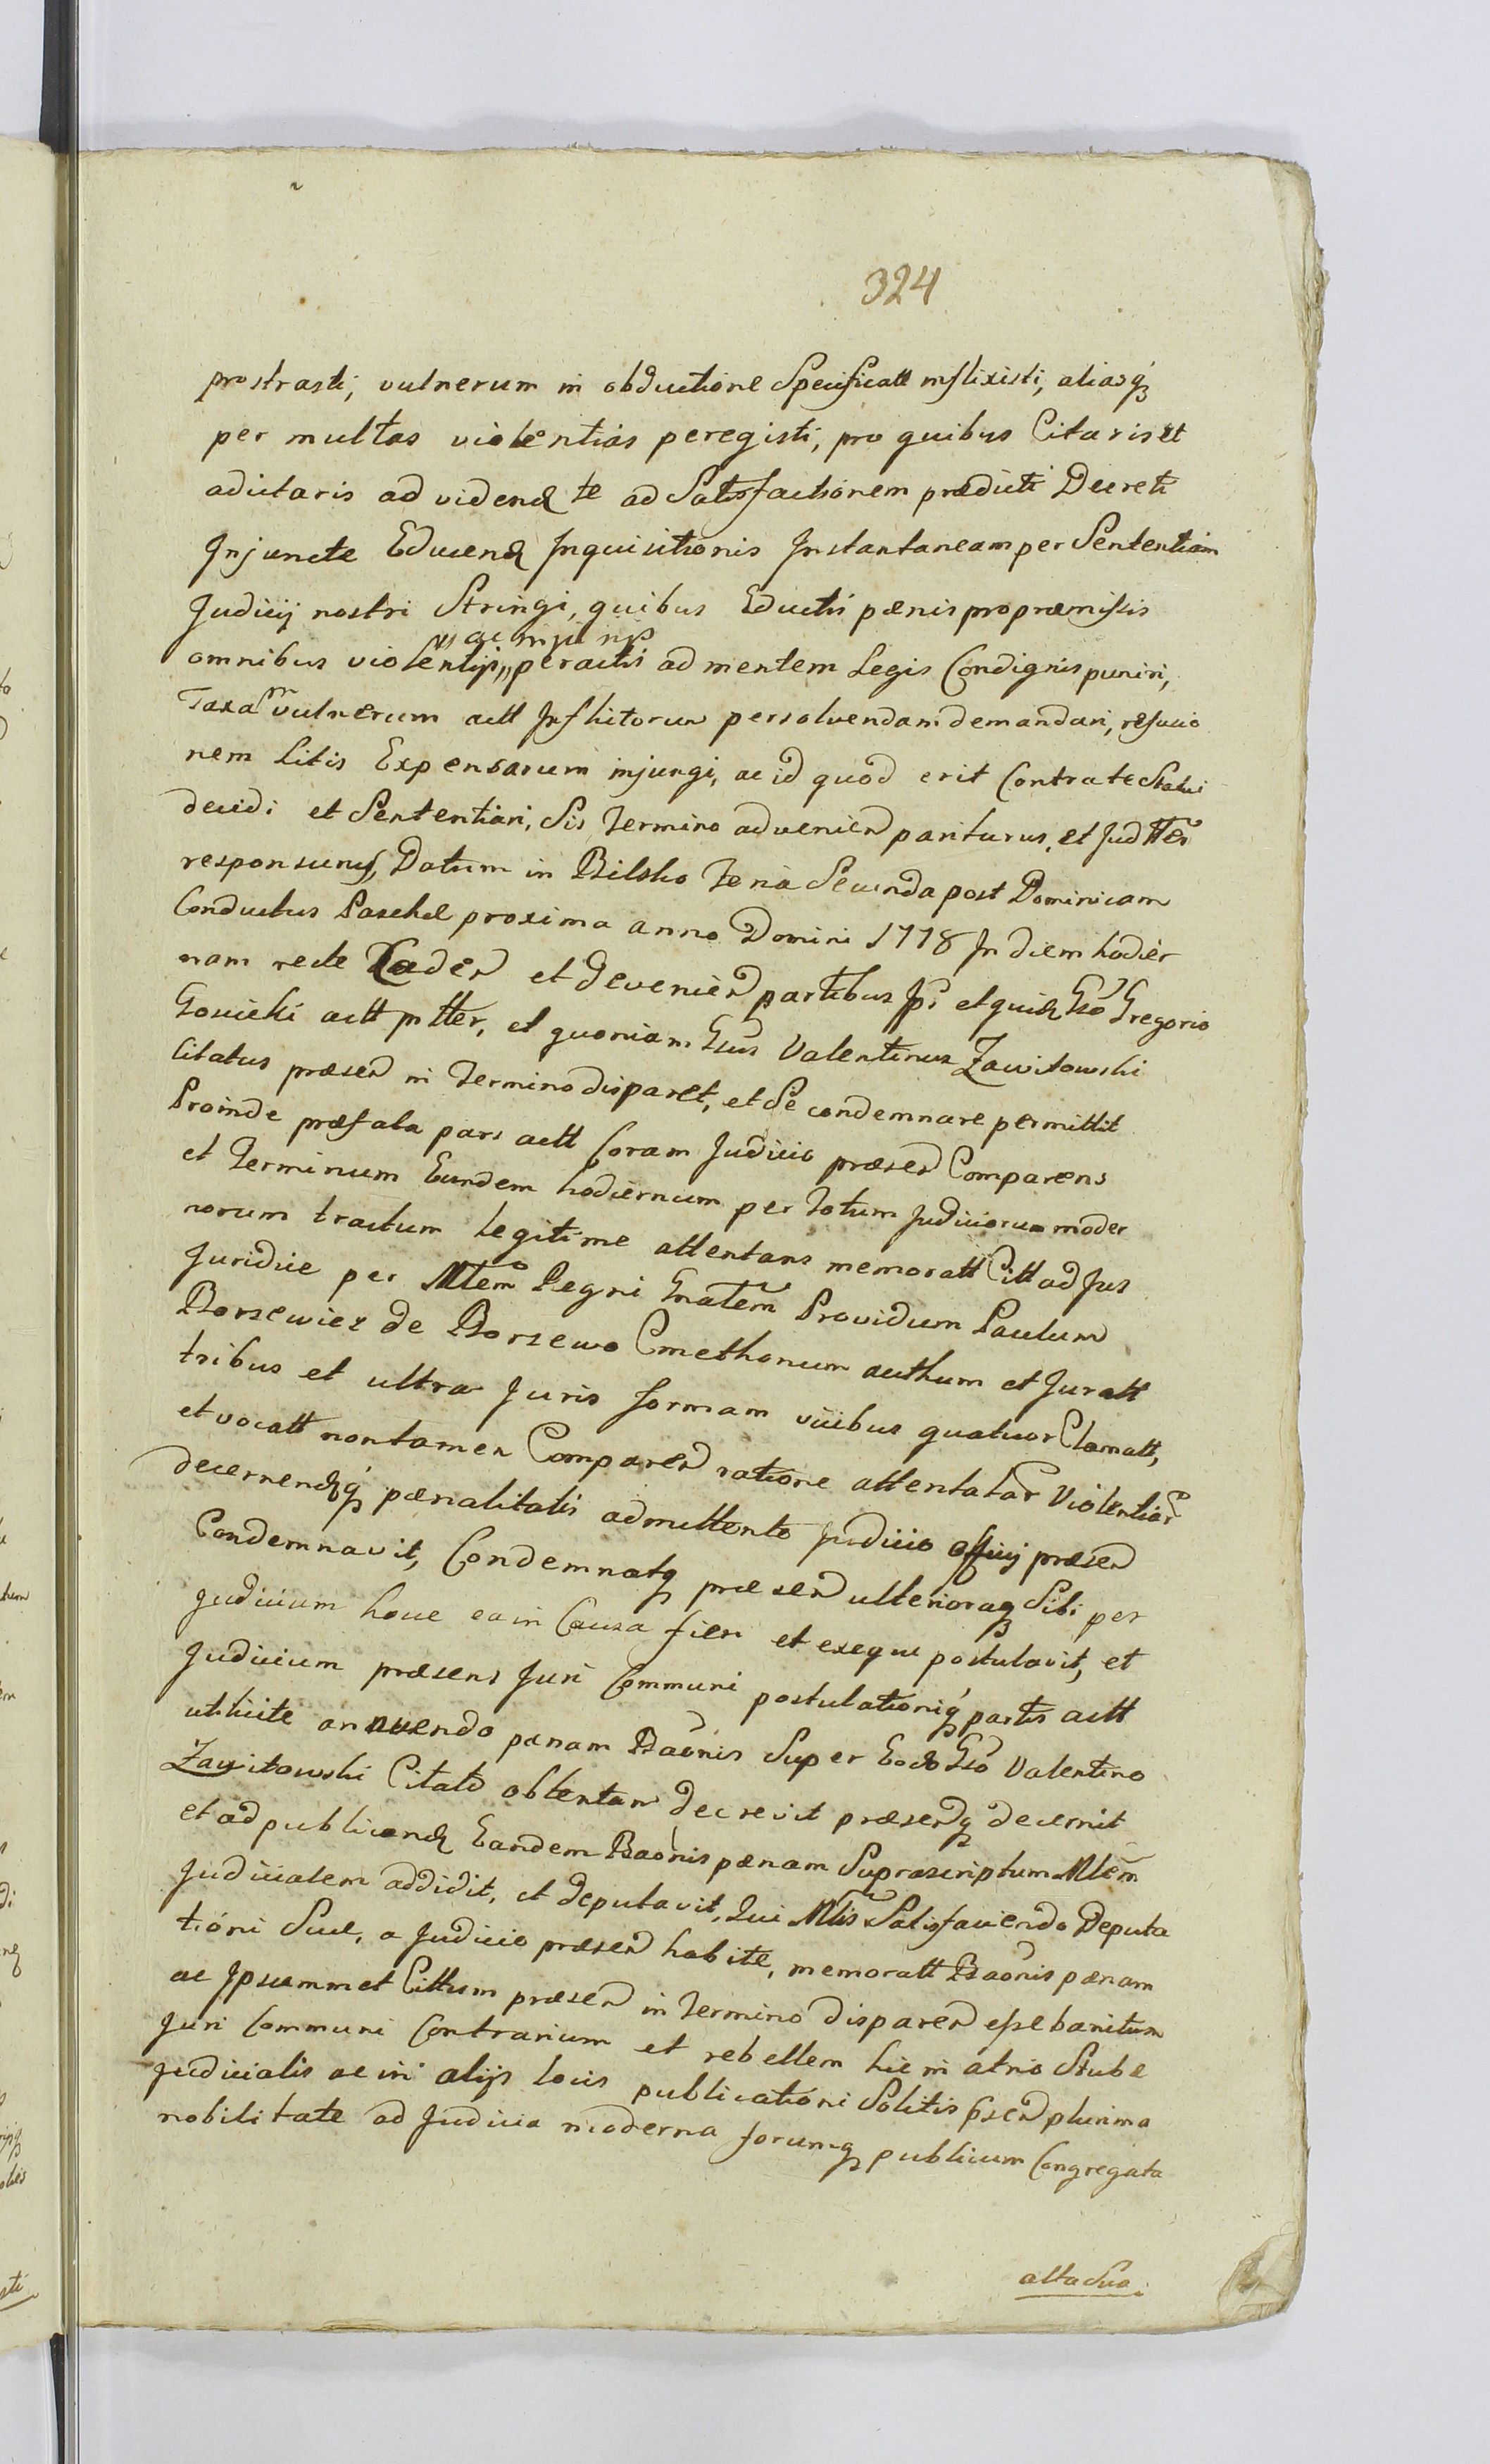 324
prostrasti, vulnerum in obductione Specificatt inflixisti, aliasq
per multas violentias peregisti, pro quibus Citaris et
adcitaris ad vidend te ad Satisfactionem prædicti Decreti
Injuncte Educend Inquisitionis Instantaneam per Sententiam
Judicij nostri Stringi, quibus Eductis pænis pro præmissis
ac injurijs
omnibus violentijs peractis ad mentem Legis Condignis puniri,
Taxam vulnerum actt Inflictorum persolvendam demandari, refusio
nem Litis Expensarum injungi, ac id quod erit Contra te Statui
decidi et Sententiari, Sis Termino advenien pariturus, et Judtter
responsurus, Datum in Bilsko Feria Secunda post Dominicam
Conductus Paschæ proxima anno Domini 1778 In diem hodier
nam recte Caden et devenien partibus Ipi et quid Gso Gregorio
Gowicki actt ptter, et quoniam Gsus Valentinus Zawitowski
Citatus præsen in Termino disparet, et Se condemnare permittit
Proinde præfata pars actt Coram Judicio præsen Comparens
et Terminum Eundem hodiernum per totum Judiciorum moder
norum tractum legitime attentans memoratt Citt ad Jus
Juridice per Mtem Regni Gnalem Providum Paulum
Borzewicz de Borzewo Cmethonum authum et Juratt
tribus et ultra Juris formam vicibus quatuor Clamatt,
et vocatt non tamen Comparen ratione attentatar Violentiar
decernendq pænalitatis admittente Judicio officij præsen
Condemnavit, Condemnatq præsen ulterioraq Sibi per
Judicium hocce ea in Causa fieri et exequi postulavit, et
Judicium præsens Juri Communi postulationiq partis actt
uti licite annuendo pænam Baonis Super Eodo Gso Valentino
Zawitowski Citato obtentam decrevit præsenq decernit
et ad publicand Eandem Baonis pænam Suprascriptum Mtem
Judicialem addidit, et deputavit, Qui Mtis Satisfaciendo Deputa
tioni Suæ, a Judicio præsen habitæ, memoratt Baonis pænam
ac Ipsummet Cittum præsen in Termino disparen esse banitum
Juri Communi Contrarium et rebellem hic in atrio Stubæ
judicialis ac in alijs locis publicationi Solitis præsen plurima
nobilitate ad Judicia moderna forumq publicum Congregata
alta Sua